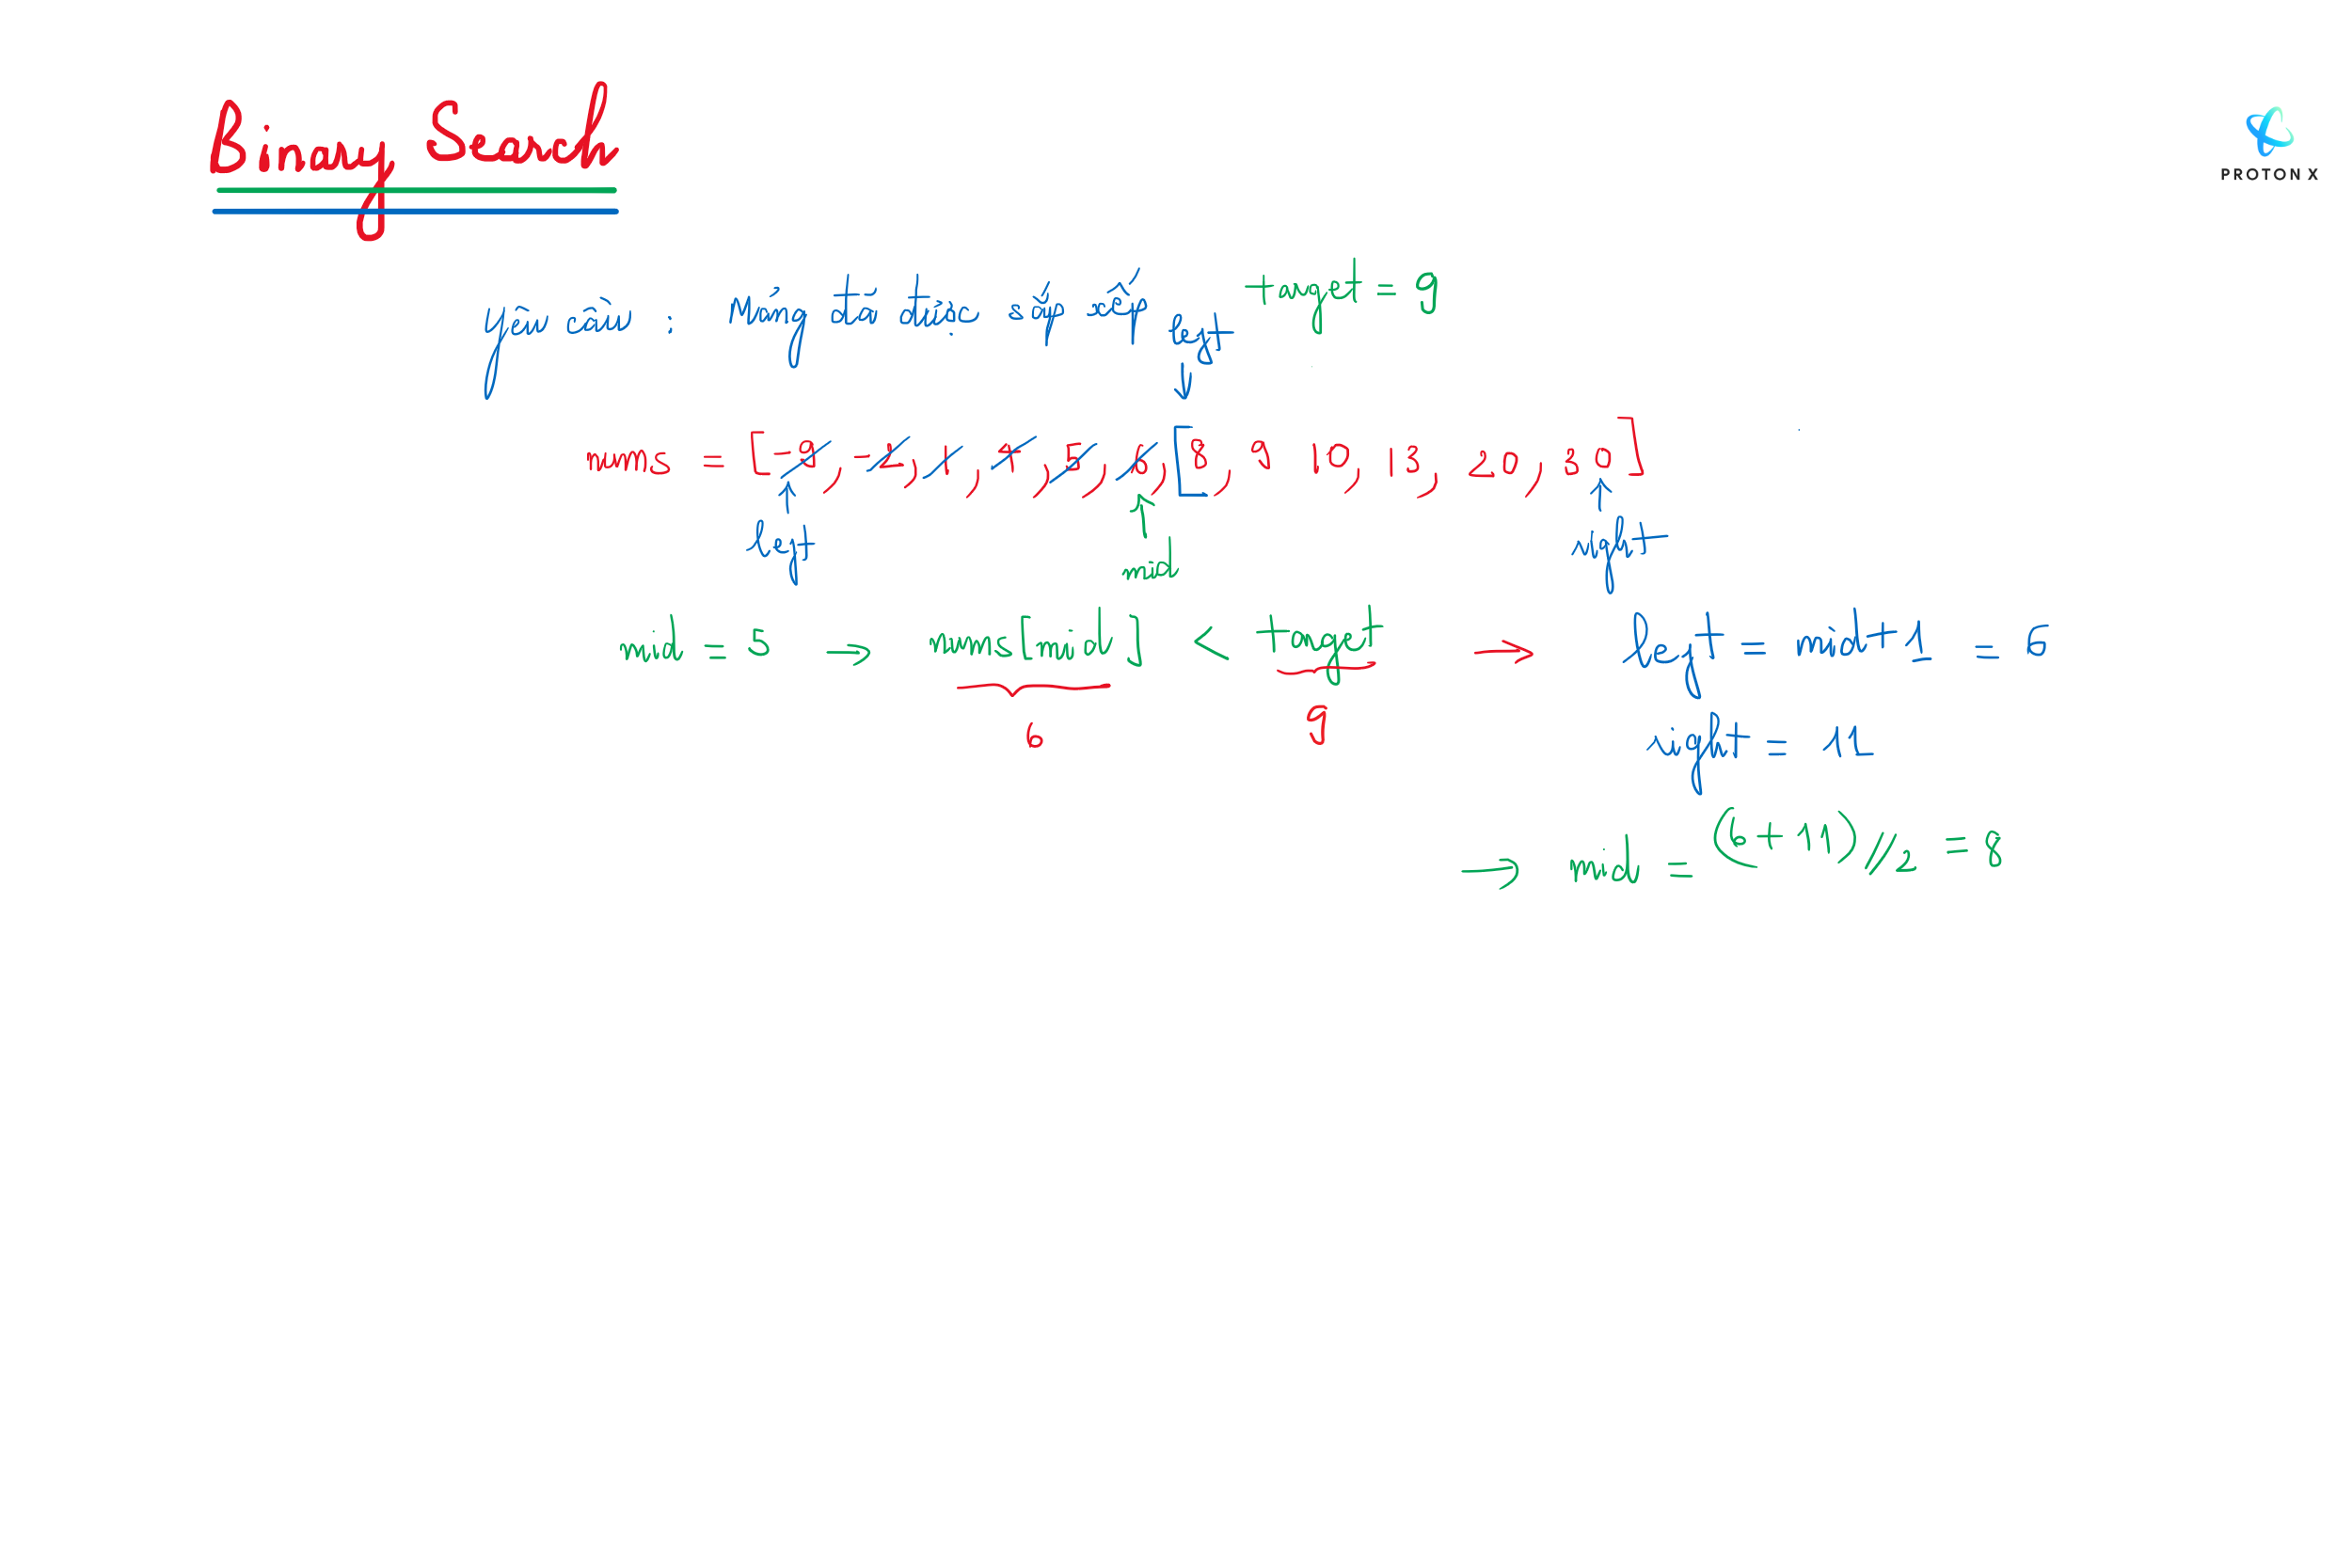 Binary Search
PROTON X
yêu cầu : Mảng đã được sắp xếp
target = 9
left
nums = [-9, -2, 1, 4, 5, 6, [8, 9 10, 13, 20, 30]
left
mid
right
mid = 5 → nums[mid] < target → left = mid+1 = 6
6
9
right = 11
→ mid = (6 + 11) // 2 = 8